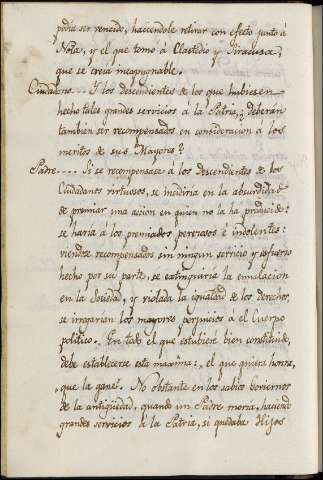 podia ser vencido, haciendole retirar con efecto junto á
Nola, y el que tomó á Clastedio y Siracusa,
que se creia inexpugnable.
Ciudadano... Y los descendientes de los que hubiesen
hecho tales grandes servicios á la Patria, deberán
tambien ser recompensados en consideracion á los
meritos de sus Mayores?
Padre.... Si se recompensase á los descendientes de los
Ciudadanos virtuosos, se incidiria en la absurdidad
de premiar una accion en quien no la ha producido:
se haria á los premiados perezosos é indolentes:
viendose recompensados sin ningun servicio y esfuerzo
hecho por su parte, se extinguiria la emulacion
en la Sociedad, y violada la igualdad de los derechos,
se irrogarian los mayores perjuicios á el Cuerpo
politico. En todo el que estubiere bien constituido,
debe establecerse esta maxima:, el que quiera honra,
, que la gane,. No obstante en los sabios Goviernos
de la antigüedad, quando un Padre moria, haciendo
grandes servicios á la Patria, si quedaba Hijos